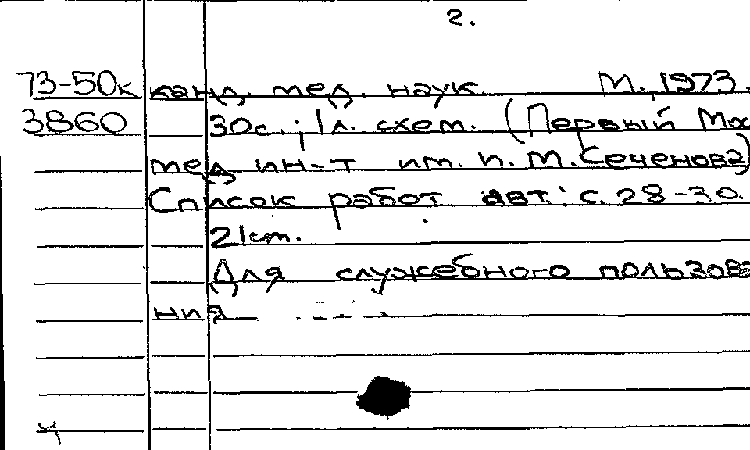 2.
73-50к канд. мед. наук. М., 1973.
3860 30с.; 1л. схем. (Первый Мос
мед ин-т им. И. М. Сеченова)
Список работ авт.: с. 28-30.
21 cm.
Для служебного пользова
ния